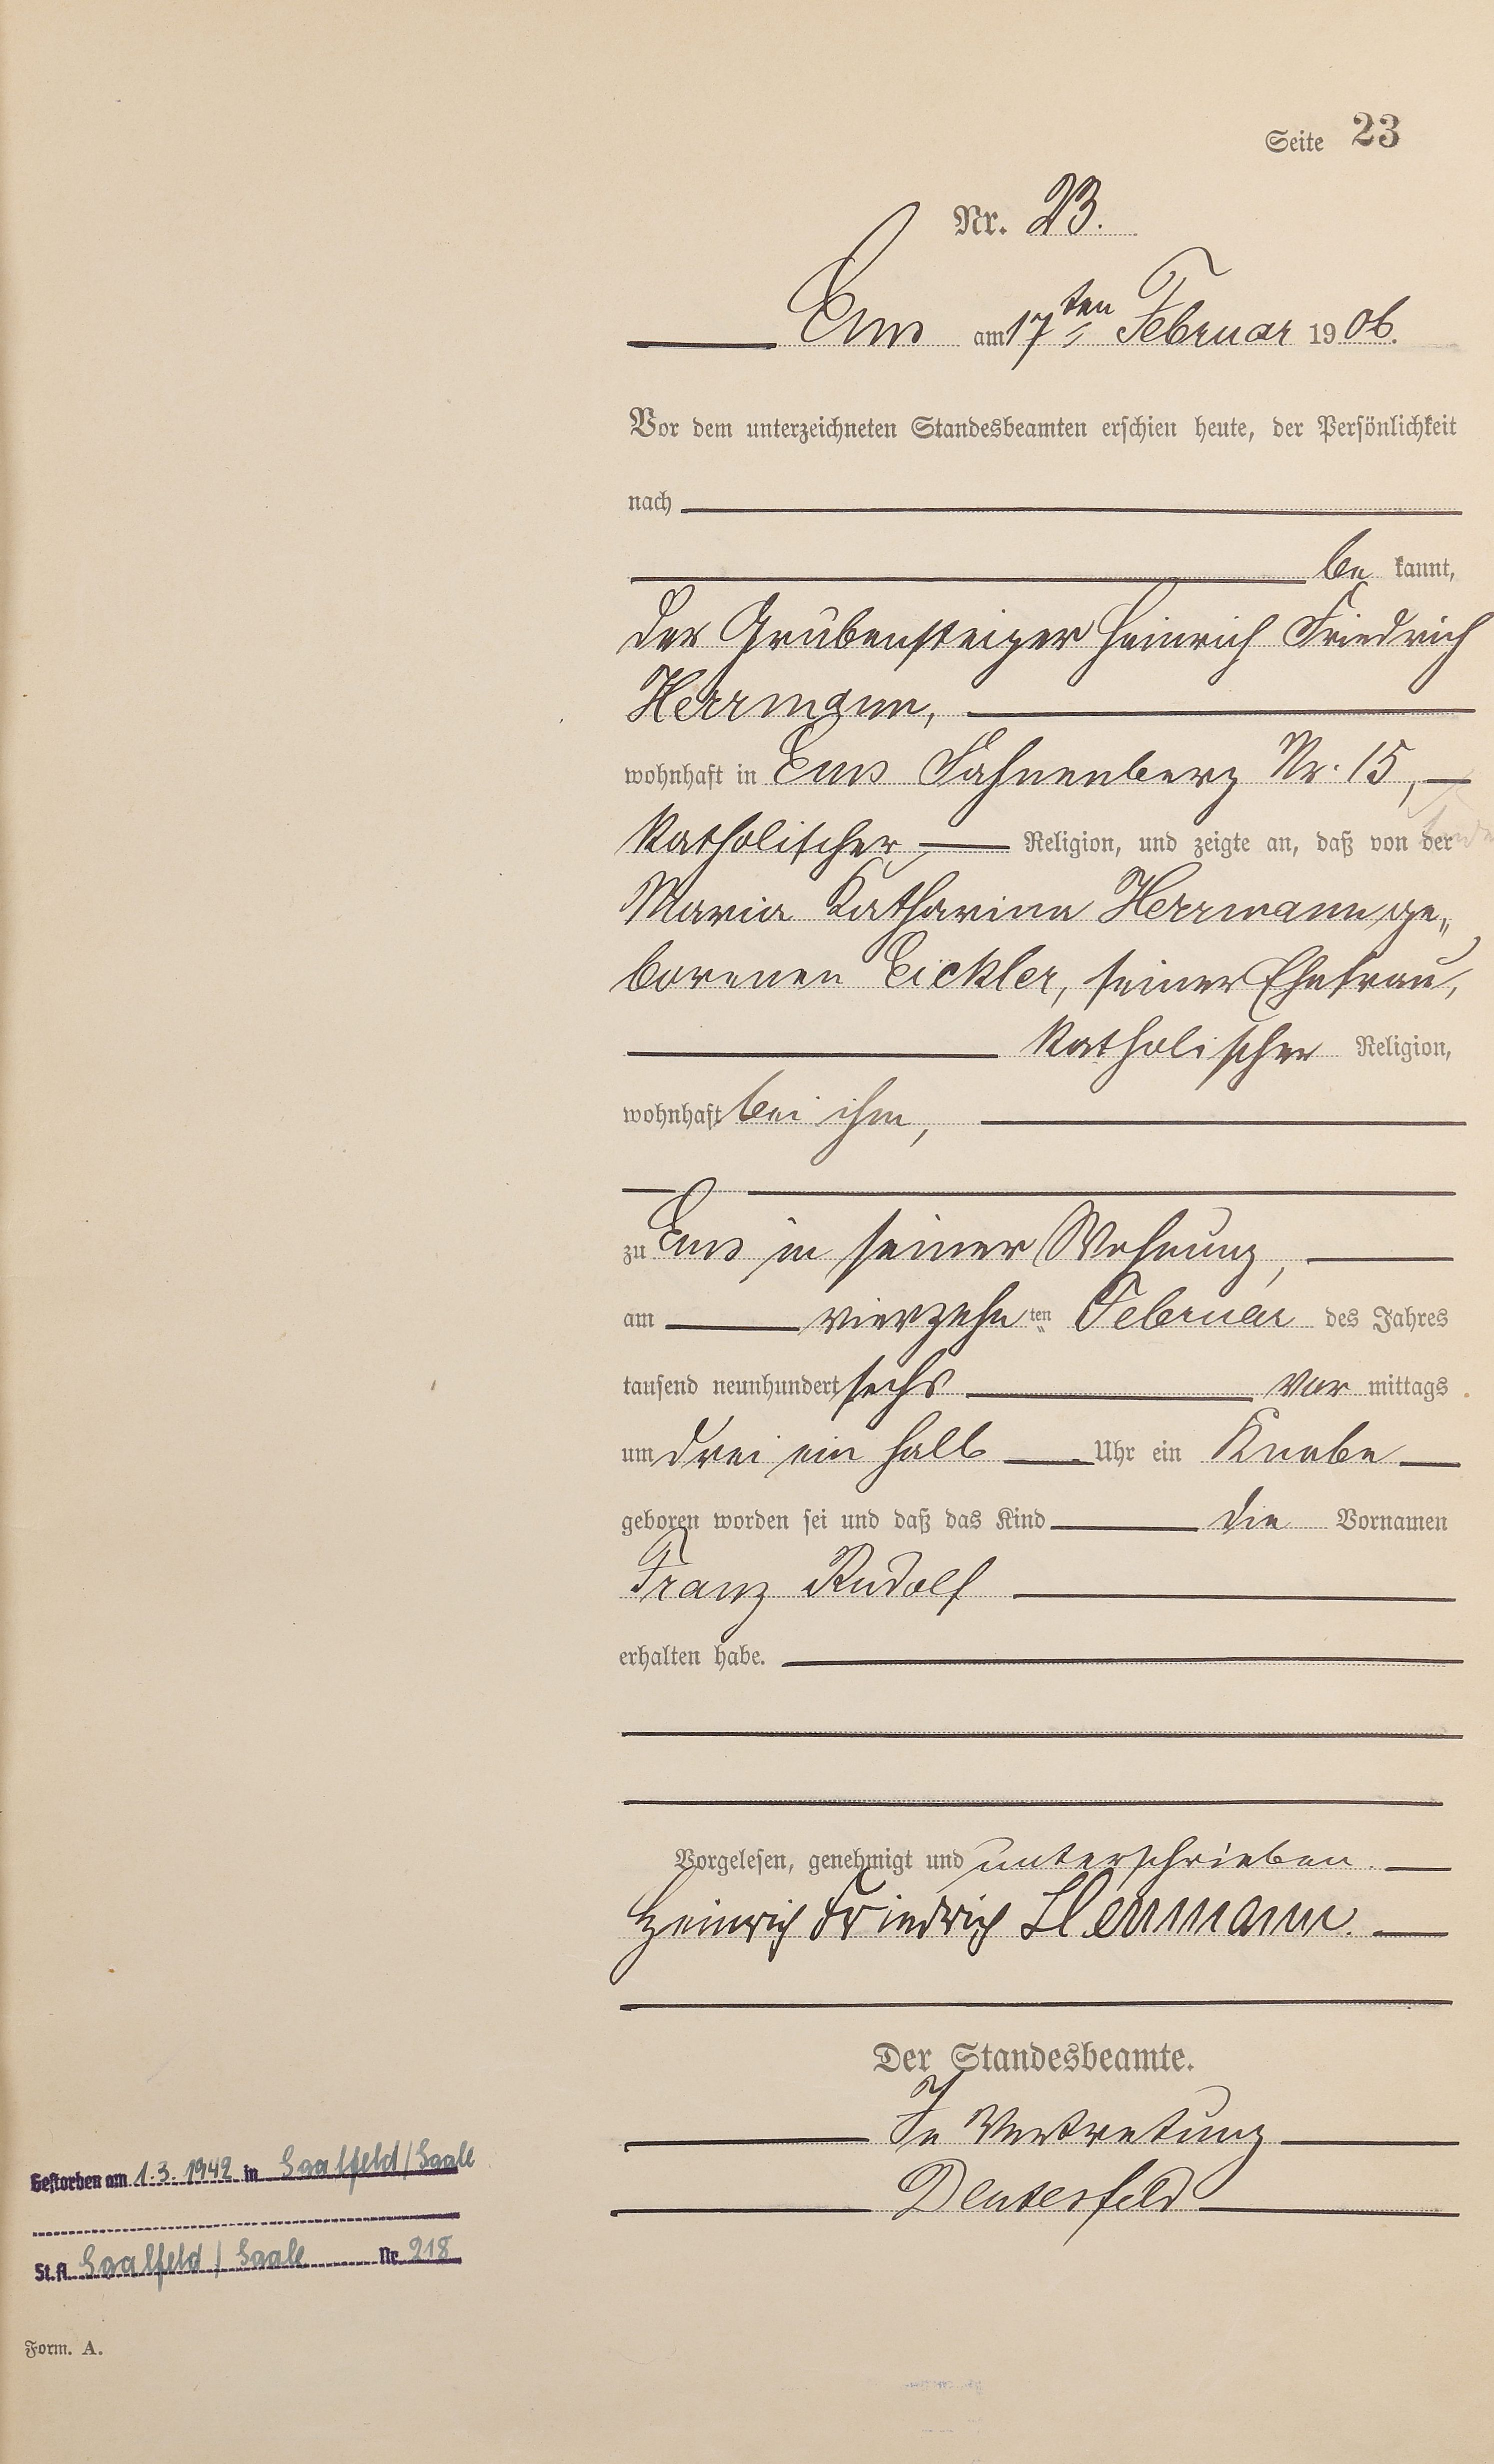 Seite 23
Nr. 23.
Ems am 17ten Februar 1906.
Vor dem unterzeichneten Standesbeamten erschien heute, der Persönlichkeit
nach
be kannt,
der Grubensteiger Heinrich Friedrich
Herrmann,
wohnhaft in Ems Fahnenberg Nr. 15,
katholischer Religion, und zeigte an, daß von der
Maria Katharina Herrmann ge„
borenen Eickler, seiner Ehefrau,
katholischer Religion,
wohnhaft bei ihm,
zu Ems in seiner Wohnung,
am vierzehn ten Februar des Jahres
tausend neunhundert sechs vor mittags
um drei ein halb Uhr ein Knabe
geboren worden sei und daß das Kind die Vornamen
Franz Rudolf
erhalten habe.
Vorgelesen, genehmigt und unterschrieben.
Heinrich Friedrich Herrmann.
Der Standesbeamte.
In Vertretung
Deusesfeld
Gestorben am 1.3.1942 in Saalfeld/Saale
St.A. Saalfeld/Saale Nr. 218
Form. A.